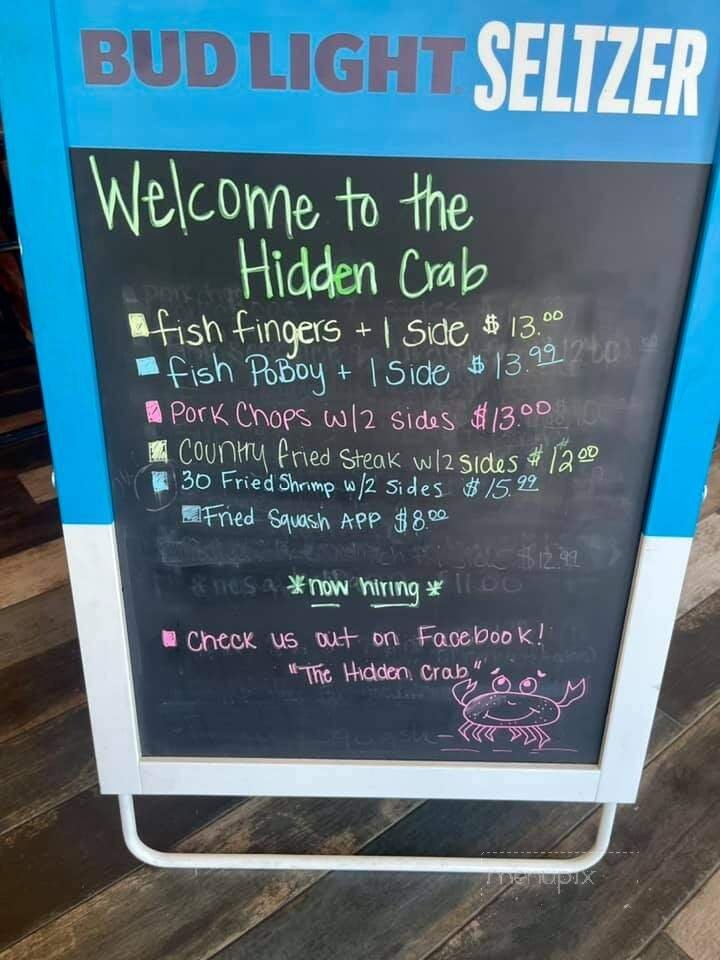 BUD LIGHT SELTZER
Welcome to the
Hidden Crab
fish fingers + 1 Side $13.00
fish PoBoy + 1 Side $13.99
Pork Chops w/2 sides $13.00
Country fried Steak w/2 sides $12.00
30 Fried Shrimp w/2 Sides $15.99
Fried Squash APP $8.00
$12.99
11.00
*now hiring*
Check us out on Facebook!
"The Hidden Crab"
menupix